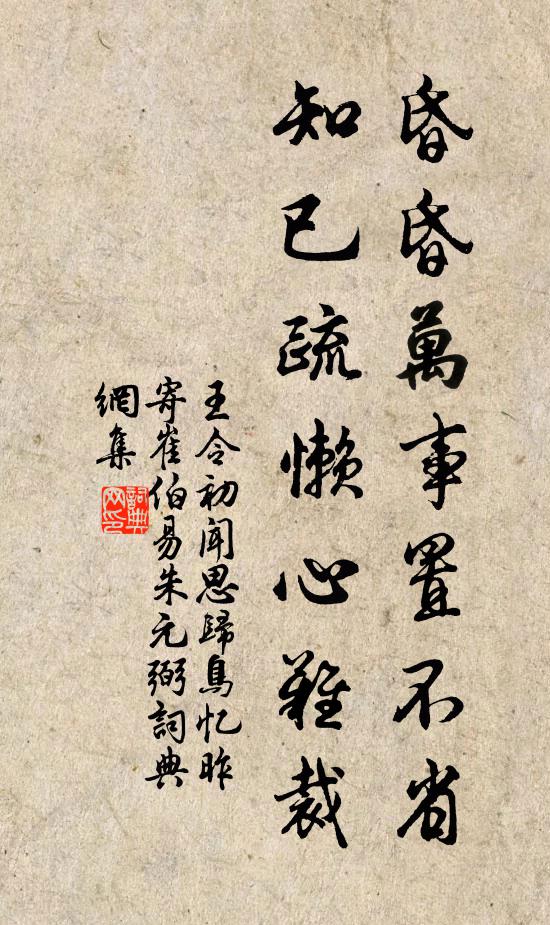 昏昏萬事置不省
知已疏懶心難裁
王令初闻思歸鳥忆昨
寄崔伯易朱元弼詞典
網集
詞典网印